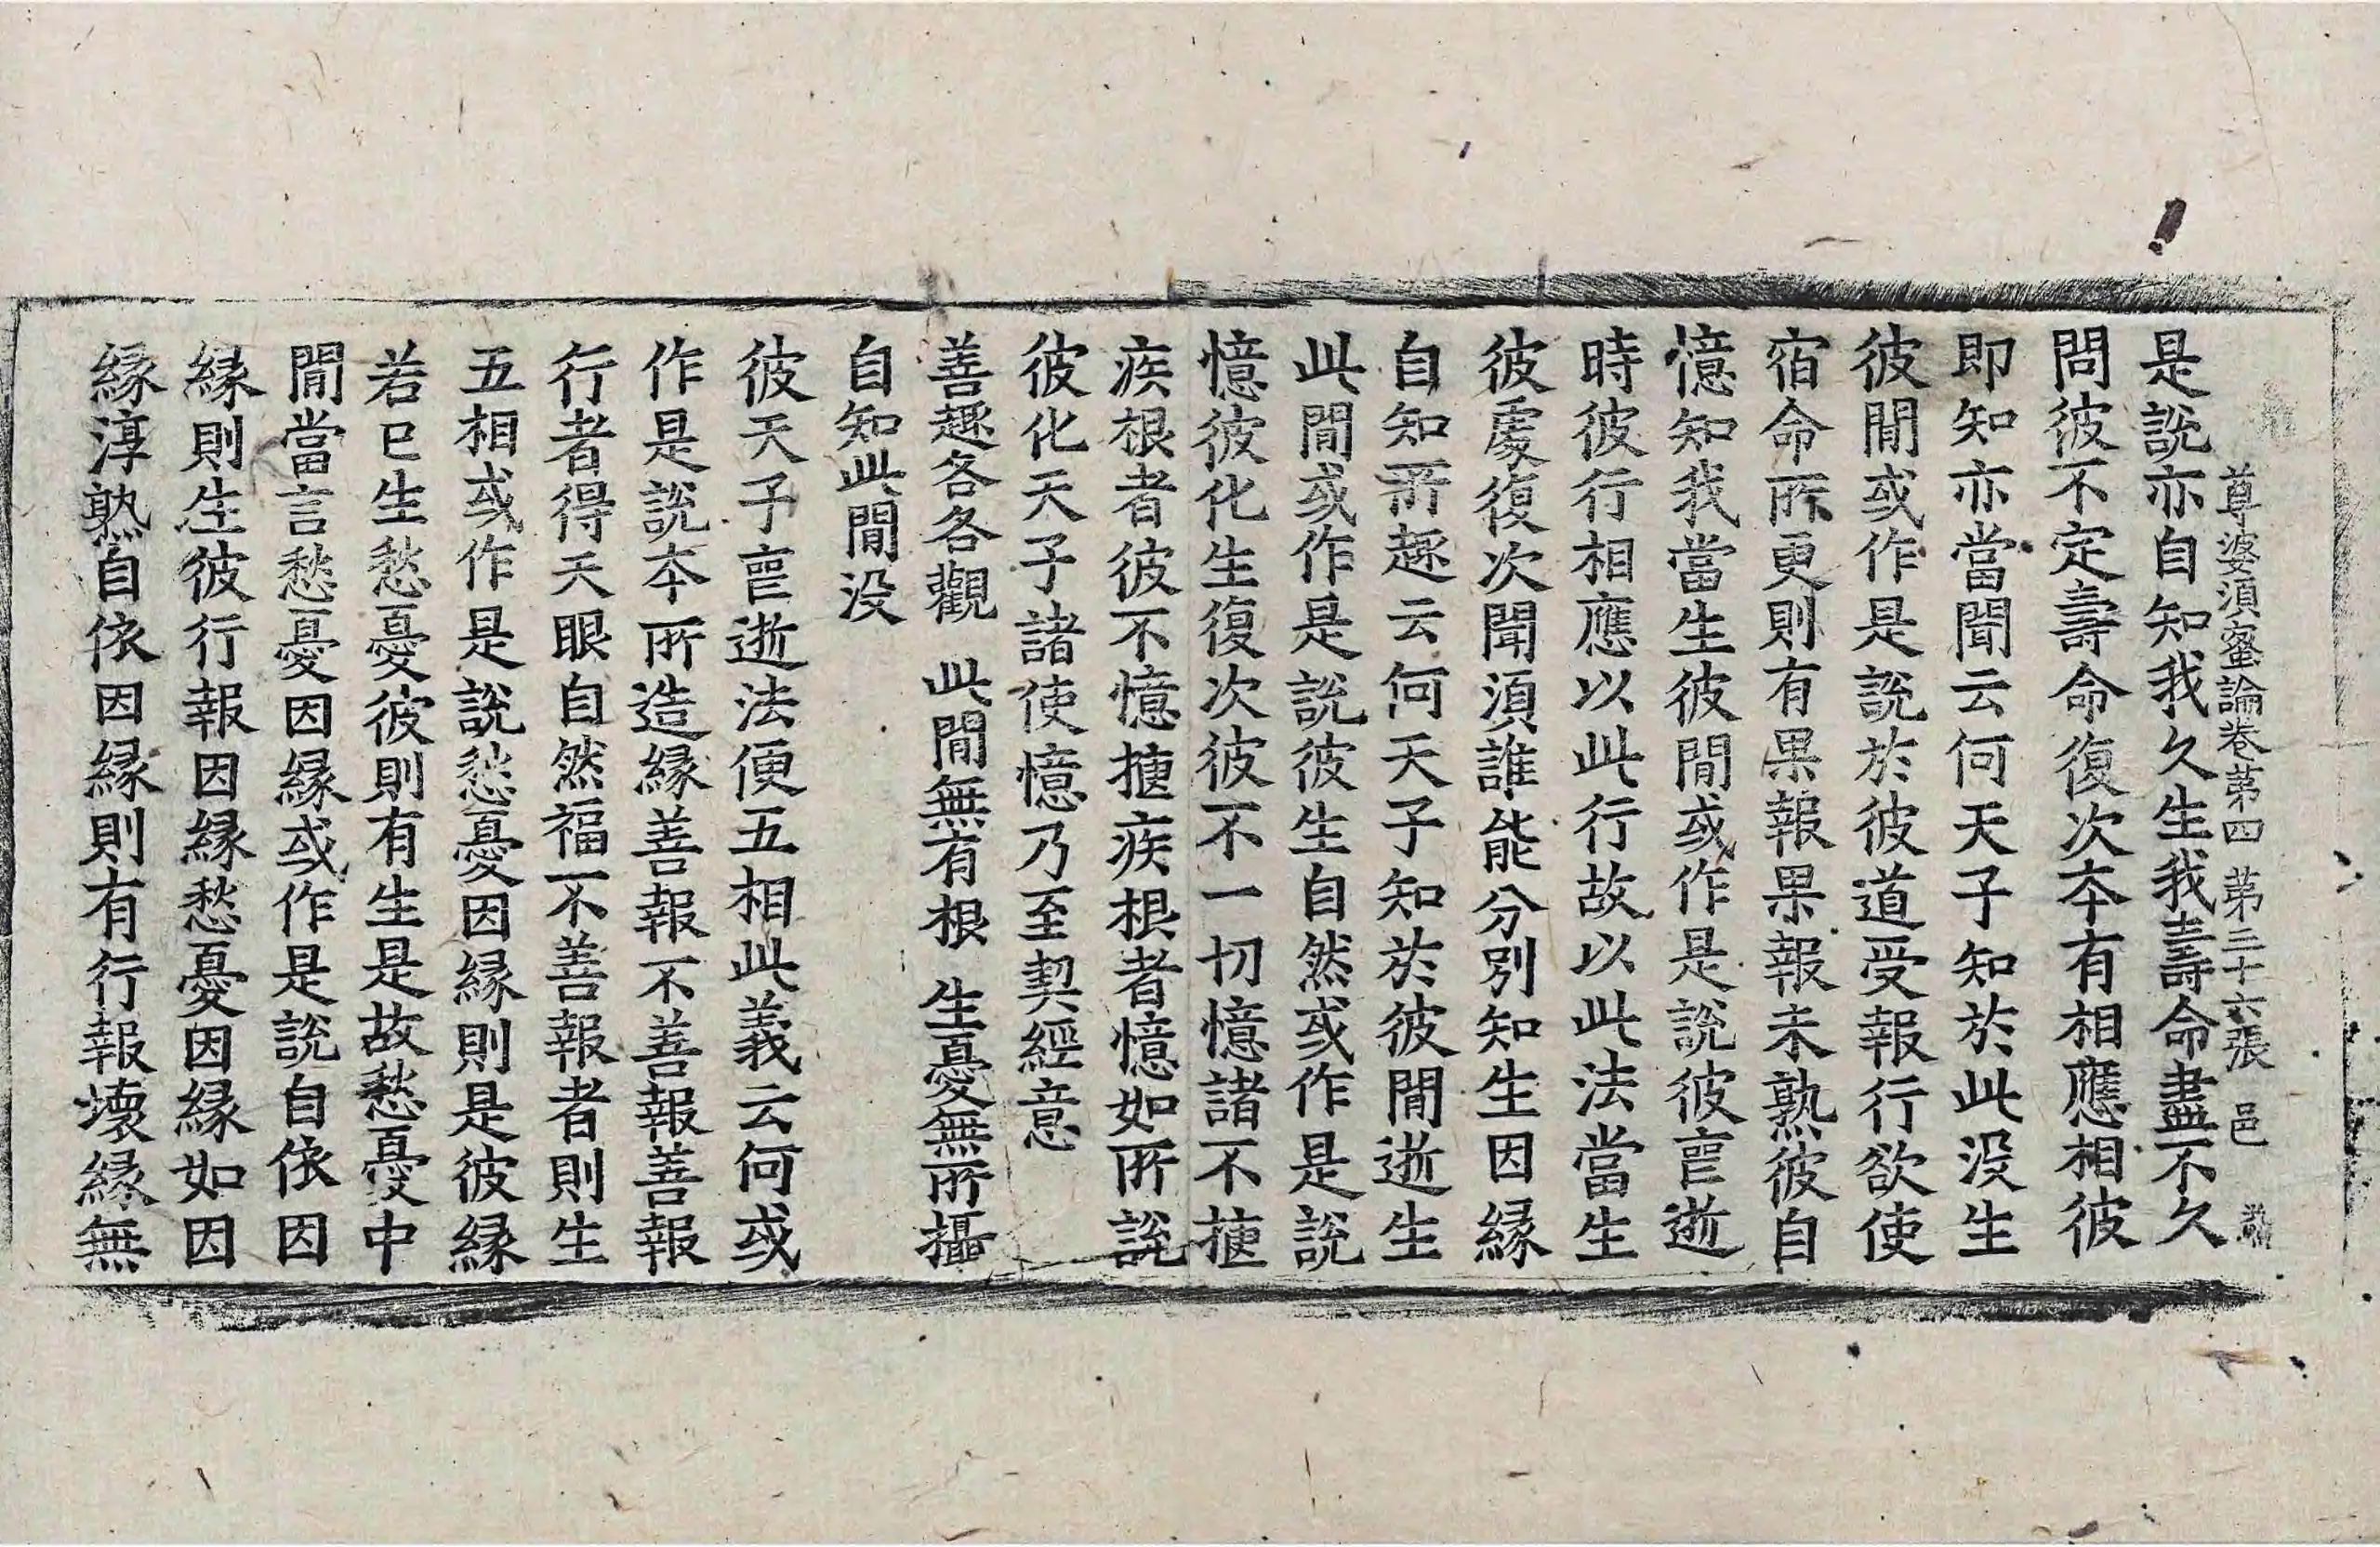 尊婆須蜜論卷第四 第三十六張 邑
是說亦自知我久生我壽命盡不久
問彼不定壽命復次本有相應相彼
即知亦當聞云何天子知於此没生
彼閒或作是說於彼道受報行欲使
宿命所更則有果報果報未熟彼自
憶知我當生彼閒或作是說彼亯逝
時彼行相應以此行故以此法當生
彼處復次聞須誰能分別知生因縁
自知所趣云何天子知於彼閒逝生
此閒或作是說彼生自然或作是說
憶彼化生復次彼不一切憶諸不揵
疾根者彼不憶揵疾根者憶如所說
彼化天子諸使憶乃至契經意
善趣各各觀 此閒無有根 生憂無所攝
自知此閒没
彼天子亯逝法便五相此義云何或
作是說本所造縁善報不善報善報
行者得天眼自然福不善報者則生
五相或作是說愁憂因縁則是彼縁
若已生愁憂彼則有生是故愁憂中
閒當言愁憂因縁或作是說自依因
縁則生彼行報因縁愁憂因縁如因
縁淳熟自依因縁則有行報壊縁無